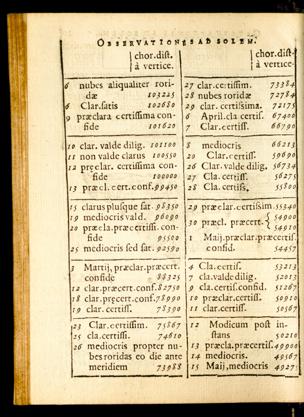 OBSERVATIONES AD SOLEM.
chor. dist.
à vertice.
6 nubes aliqualiter rori-
dæ 103225
8 Clar. satis 102680
9 præclara certissima con-
fide 101620
10 clar. valde dilig. 101100
11 non valde clarus 100550
12 præclar. certissima con-
fide 100000
13 præcl. cert. conf. 99450
15 clarus plusque sat. 98350
19 mediocris vald. 96090
20 præcla. præcertissi. con-
fide 95500
25 mediocris sed sat. 92590
3 Martij, præclar. præcert.
confide 88325
12 clar. præcert. conf. 82750
18 clar. præcert. conf. 78990
19 clar. certiss. 78390
23 Clar. certissim. 75867
25 cla. certissim. 74610
26 mediocris propter nu-
bes roridas eo die ante
meridiem 73988
chor. dist.
à vertice.
27 clar. certissim. 73384
28 nubes roridæ 72784
29 clar. certissima. 72175
6 April. cla certis. 67400
7 Clar. certiss. 66790
8 mediocris 66213
20 Clar. certiss. 59690
26 Clar. valde dilig. 56734
27 Cla. certiss. 56275
28 Cla. certiss, 55800
29 præclar. certissim 55340
30 præcl. præcert. { 54900
54910
1 Maij. præclar. præcertis.
confid. 54457
4 Cla. certis. 53213
7 cla. valde dilig. 52013
9 cla. certis. confid. 51267
10 præclar. certiss. 50910
11 clar. certiss. 50560
12 Modicum post in-
stans 50210
13 præcla. præcertis. 49900
14 mediocris. 49567
15 Maij, mediocris 49275